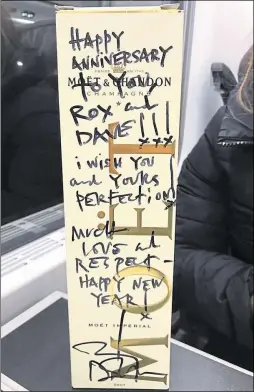 HAPPY
ANNIVERSARY
MOËT & CHANDON
CHAMPAGNE
TO YOU
ROX and
DAVE!!!
xxx
i WISH YOU
and YOURS
PERFECTION!
MUCH
LOVE at
RESPECT-
HAPPY NEW
YEAR!
x
MOËT IMPERIAL
MOËT
BRUT